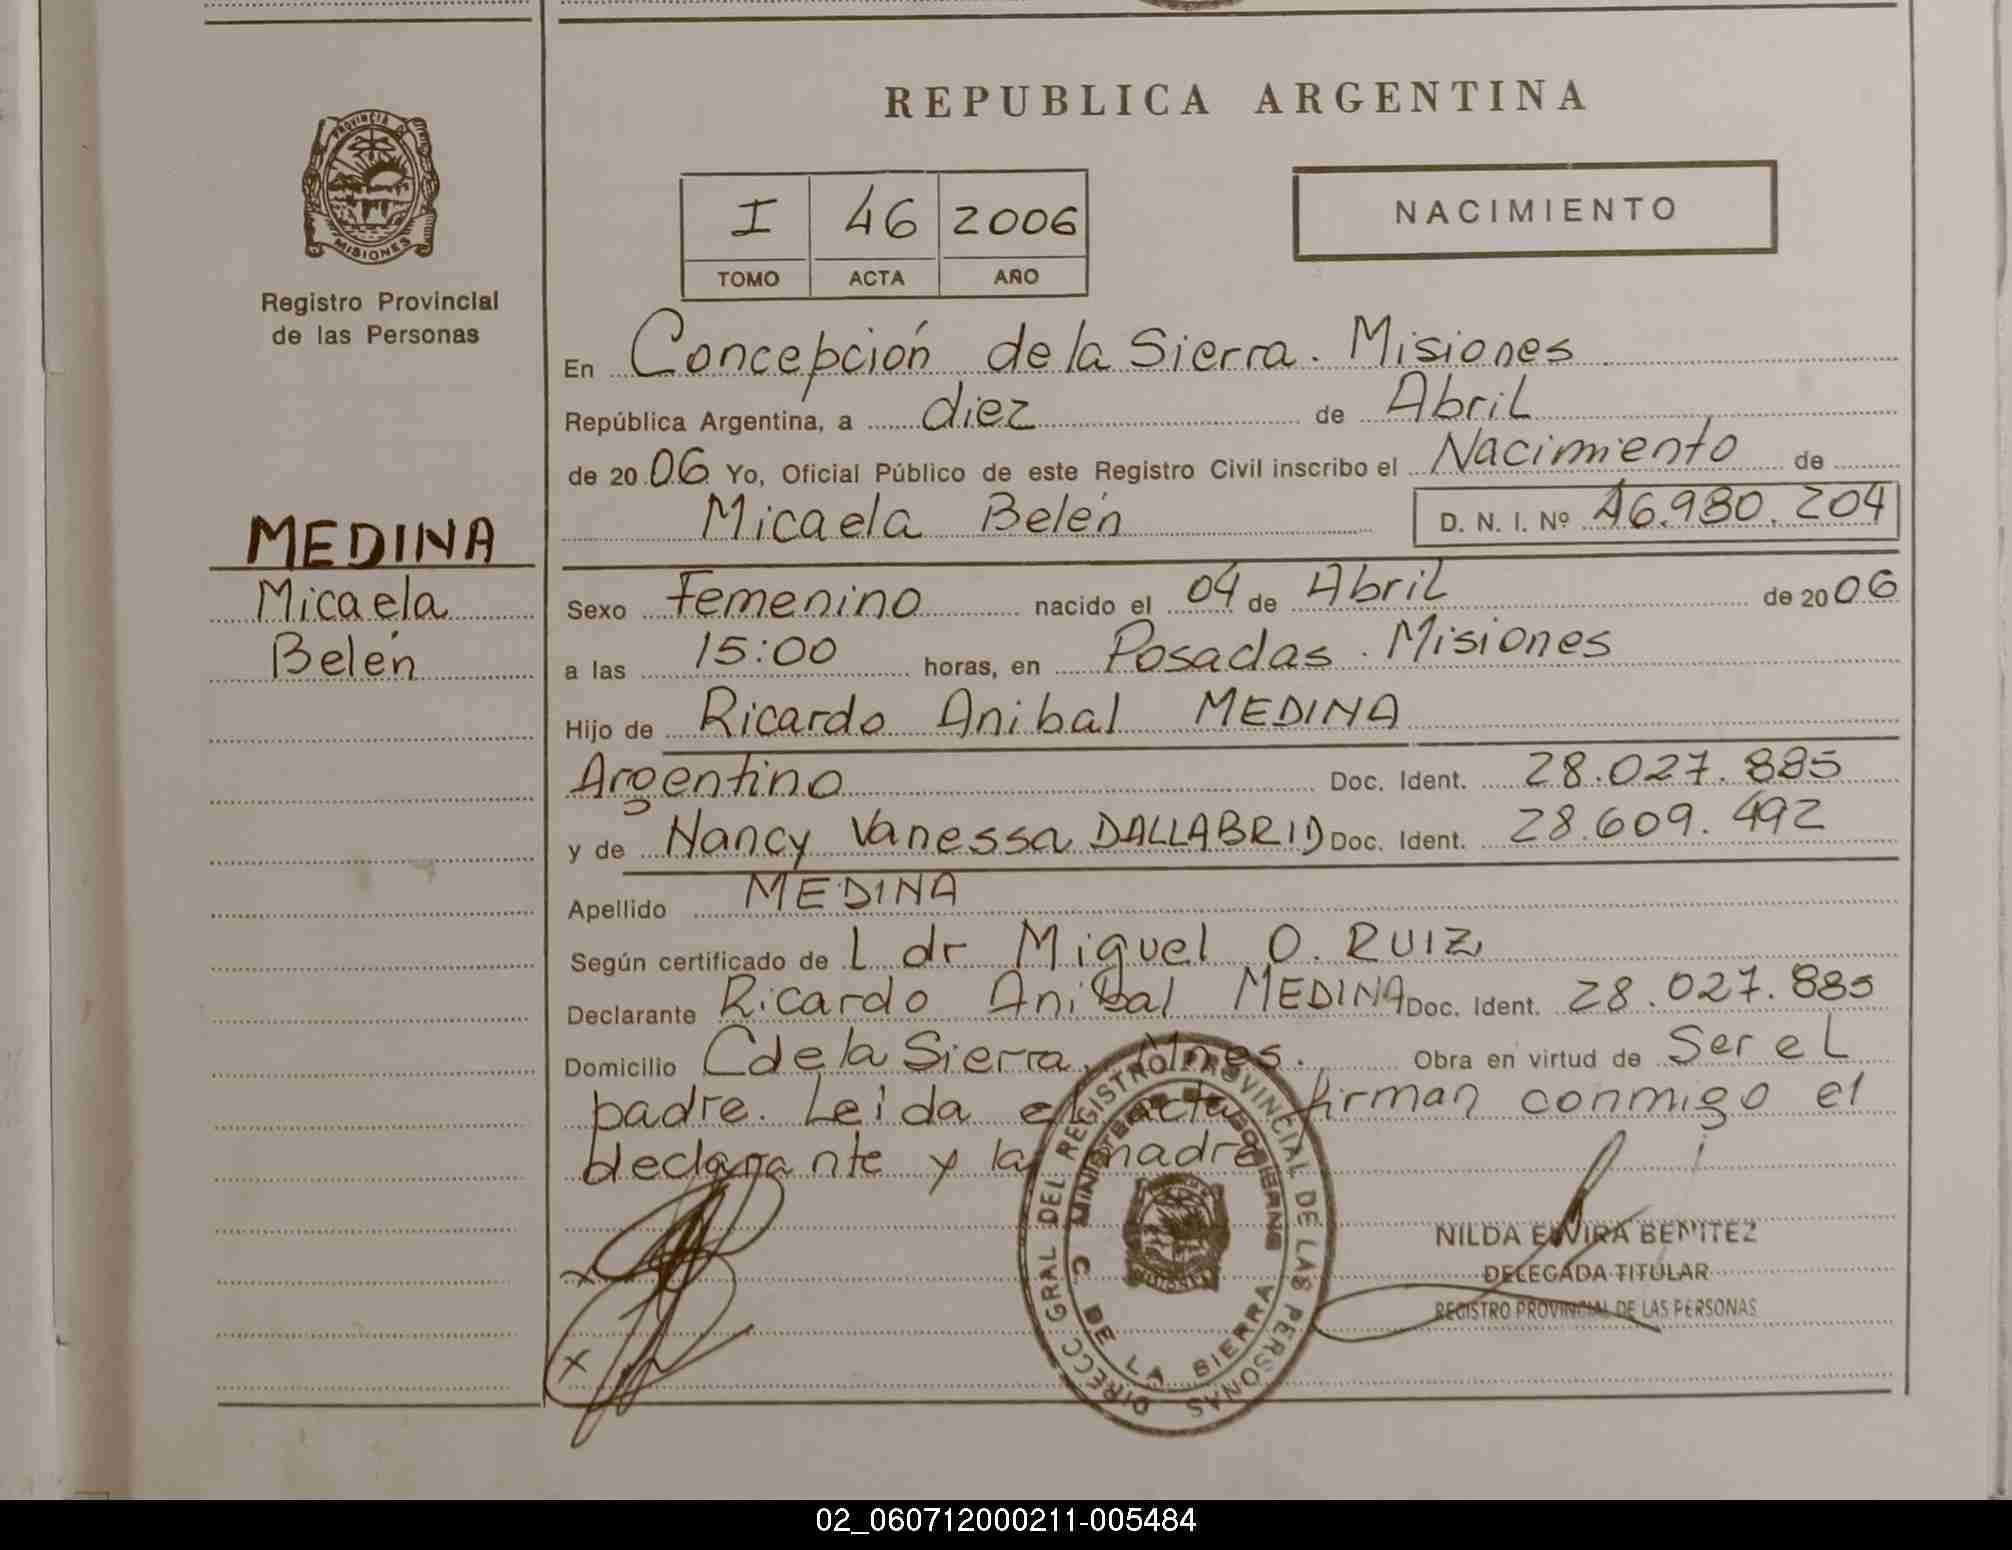 REPUBLICA ARGENTINA
PROVINCIA DE
MISIONES
Registro Provincial
de las Personas
I 46 2006
TOMO ACTA AÑO
NACIMIENTO
En Concepción de la Sierra. Misiones
República Argentina, a diez de Abril
de 2006 Yo, Oficial Público de este Registro Civil inscribo el Nacimiento de
Micaela Belén D. N. I. Nº 46.980.204
MEDINA
Micaela
Belén
Sexo Femenino nacido el 04 de Abril de 2006
a las 15:00 horas, en Posadas. Misiones
Hijo de Ricardo Anibal MEDINA
Argentino Doc. Ident. 28.027.885
y de Nancy Vanessa DALLABRID Doc. Ident. 28.609.492
Apellido MEDINA
Según certificado de L dr Miguel O. RUIZ
Declarante Ricardo Anibal MEDINA Doc. Ident. 28.027.885
Domicilio C de la Sierra. Mnes. Obra en virtud de Ser el
padre. Leida el acta firman conmigo el
declarante y la madre
DIRECC GRAL DEL REGISTRO PROVINCIAL DE LAS PERSONAS
C DE LA SIERRA
NILDA ELVIRA BENITEZ
DELEGADA TITULAR
REGISTRO PROVINCIAL DE LAS PERSONAS
02_060712000211-005484